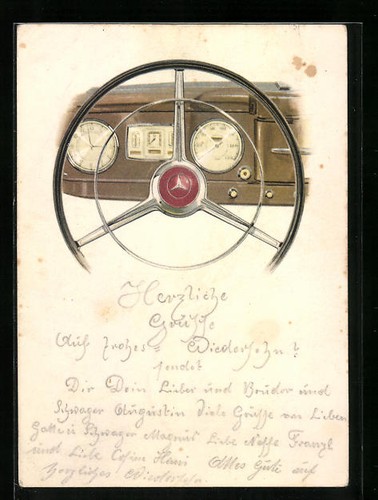 Herzliche
Grüsse
Auf frohes= Wiedersehn!
sendet
Dir Dein Lieber und Bruder und
Schwager Augustin Viele Grüsse von Lieben
Gatte u Schwager Magnus Liebe Neffe Franzl
und Liebe Hansi Alles Gute auf
Herzliches Wiedersehn